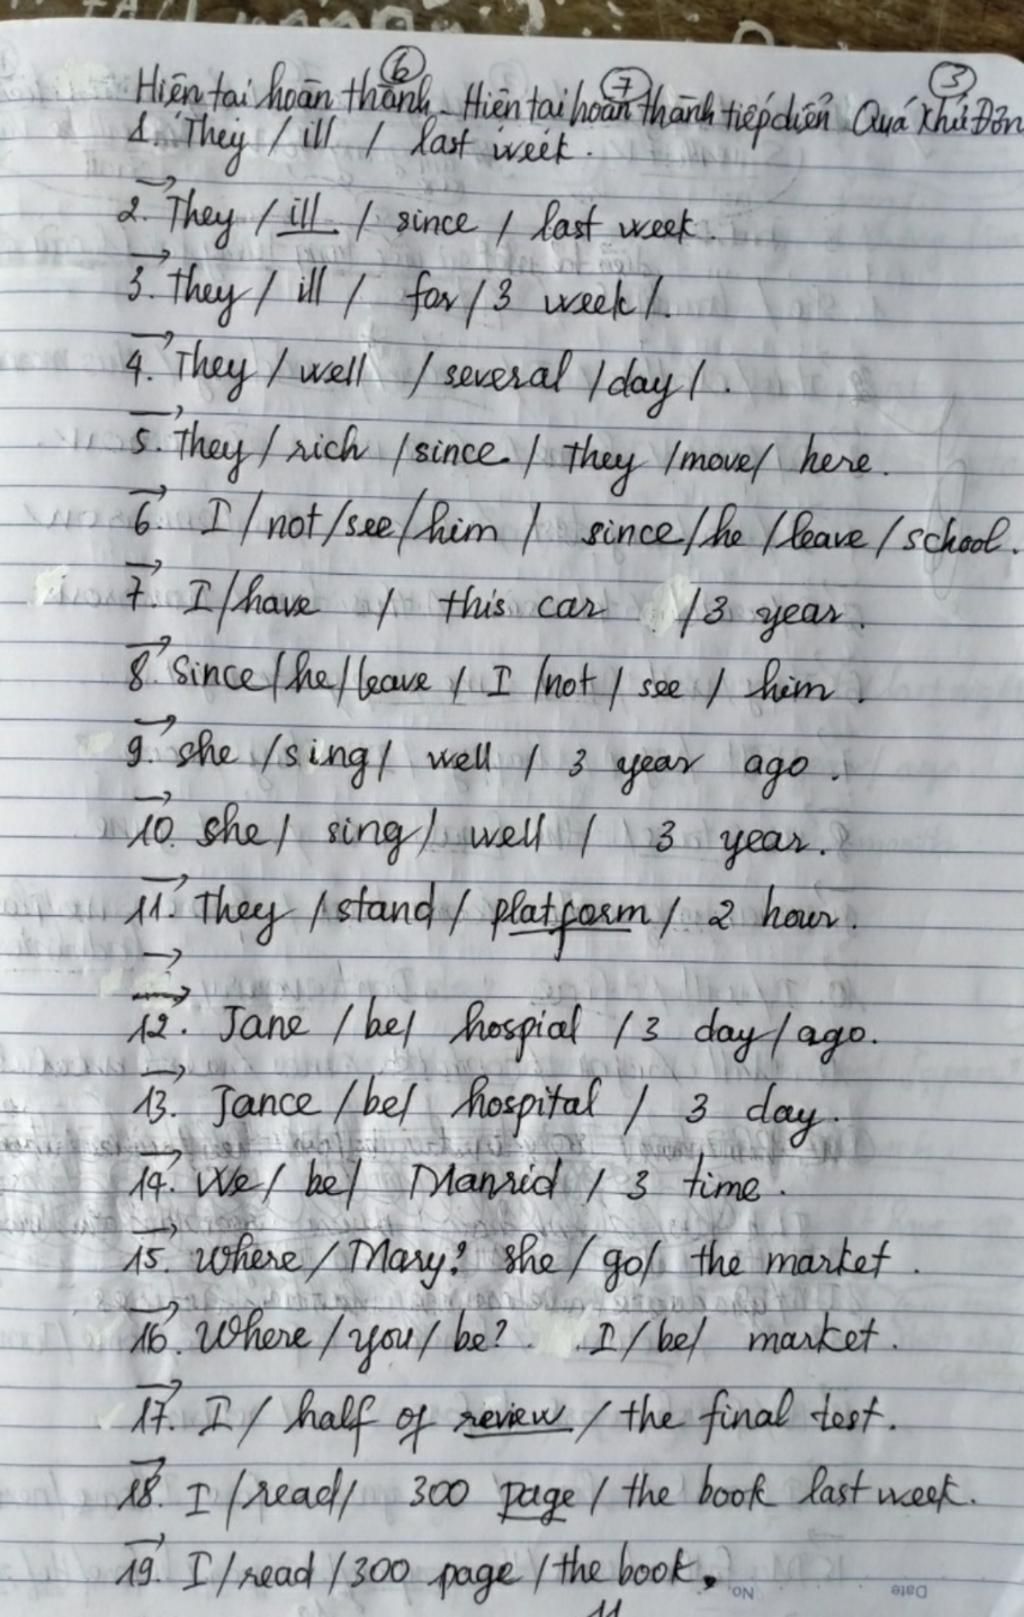 6 7 3
Hiện tai hoàn thành - Hiện tai hoàn thành tiếp diễn Quá Khứ Đơn
1. They / ill / last week.
→
2. They / ill / since / last week.
→
3. They / ill / for / 3 week /.
→
4. They / well / several / day / .
→
5. They / rich / since / they / move / here.
→
6. I / not / see / him / since / he / leave / school.
→
7. I / have / this car / 3 year.
→
8. Since / he / leave / I / not / see / him.
→
9. she / sing / well / 3 year ago.
→
10. she / sing / well / 3 year.
→
11. They / stand / platform / 2 hour.
→
→
12. Jane / be / hospial / 3 day / ago.
→
13. Jance / be / hospital / 3 day.
→
14. We / be / Manrid / 3 time.
→
15. Where / Mary? she / go / the market.
→
16. Where / you / be? I / be / market.
→
17. I / half of review / the final test.
→
18. I / read / 300 page / the book last week.
→
19. I / read / 300 page / the book.
No. Date